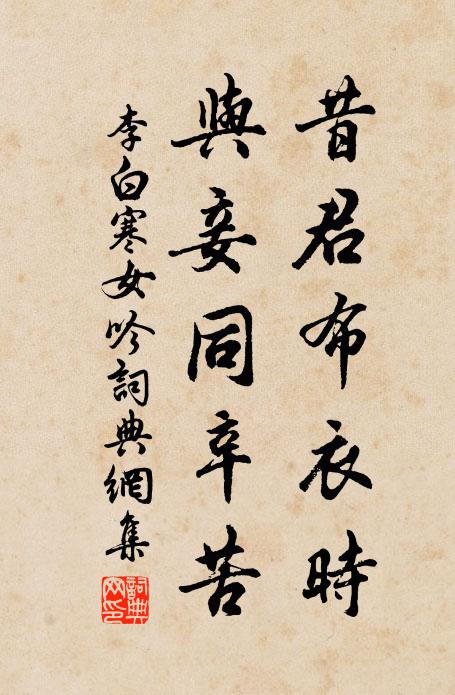 昔君布衣時
與妾同辛苦
李白寒女吟詞典網集
詞典
网印